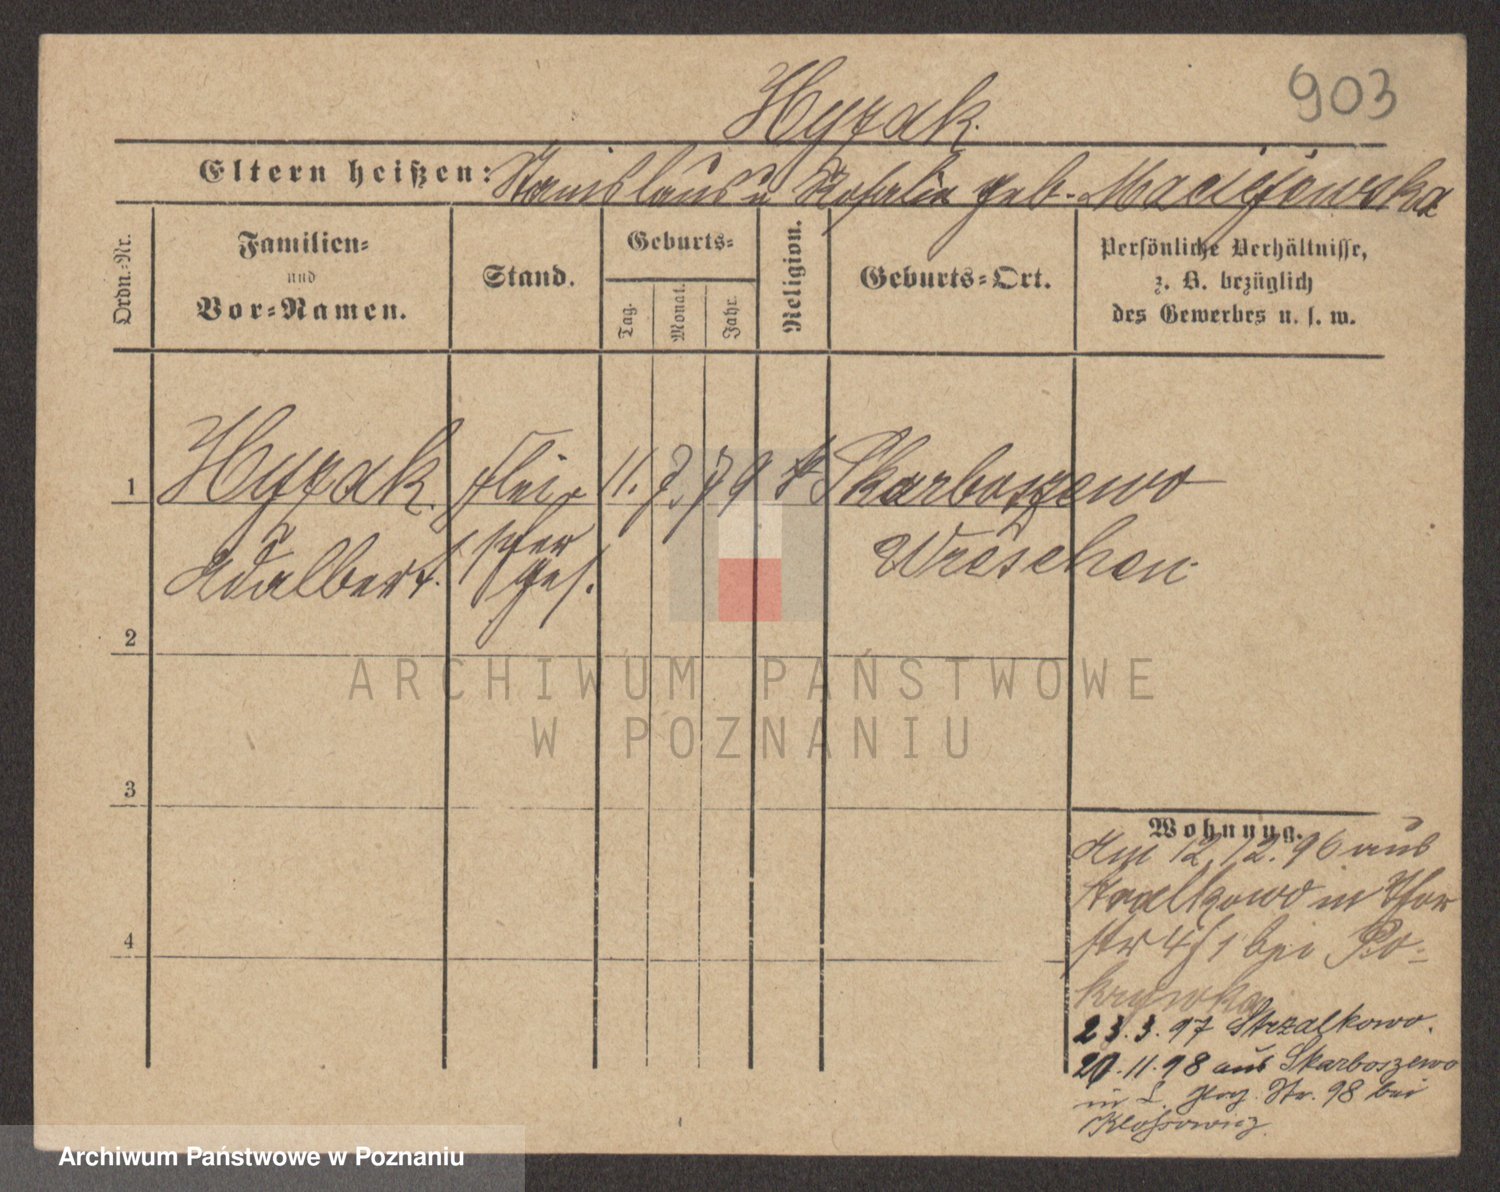 903
Hyzak.
Eltern heißen: Stanislaus u Rosalia geb. Maciejewska
Ordn.-Nr.
Familien-
und
Vor-Namen.
Stand.
Geburts-
Tag.
Monat.
Jahr.
Religion.
Geburts-Ort.
Persönliche Verhältnisse,
z. B. bezüglich
des Gewerbes u. s. w.
1
Hyzak Flei 11. 79 k Skarboszewo
Adalbert. scher Wreschen
ges.
2
3
4
Wohnung.
Am 12.12.96 aus
in Thor
str 4/1 bei Po-
krzywka
23.3.97 Strzalkowo.
20.11.98 aus Skarboszewo
in L. Str. 98 bei
Klossowicz.
ARCHIWUM PAŃSTWOWE
W POZNANIU
Archiwum Państwowe w Poznaniu